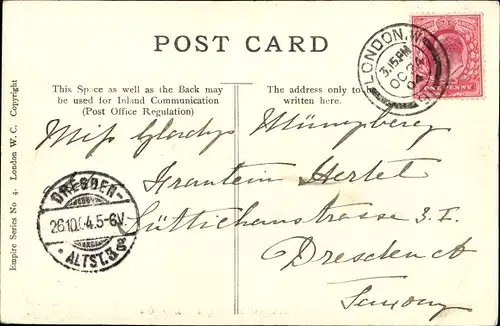 POST CARD
This Space as well as the Back may
be used for Inland Communication
(Post Office Regulation)
The address only to be
written here.
LONDON.W
3.15.PM
OC 24
04
ONE PENNY
Miss Gladys Münzberg
Fraulein Hertel
Lüttichaustrasse 3. I.
Dresden A
Saxony
DRESDEN-
26.10.04.5-6V.
ALTST.3
Empire Series No 4. London W. C. Copyright